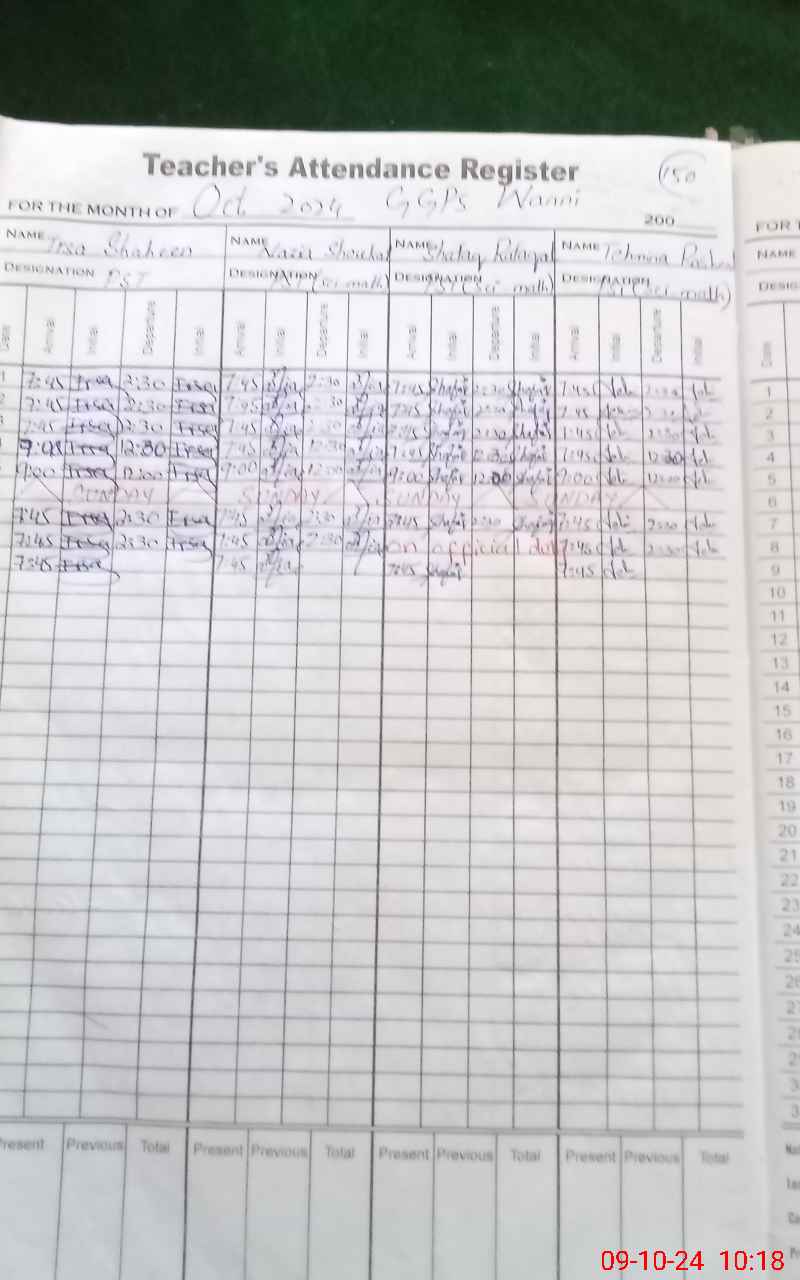 Teacher's Attendance Register
150
FOR THE MONTH OF Oct 2024 GGPS Wanni
200
FOR T
NAME Irsa Shaheen NAME Nazia Shoukat NAME Shafaq NAME Tehmina
NAME
DESIGNATION PST DESIGNATION PST (sci math) DESIGNATION PST (sci math) DESIGNATION PST (sci math)
DESIG
Date Arrival Initial Departure Initial Arrival Initial Departure Initial Arrival Initial Departure Initial Arrival Initial Departure Initial Date
7:45 Irsa 2:30 Irsa 7:45 2:30 7:45 Shafaq 2:30 Shafaq 7:45 2:30 1
7:45 Irsa 2:30 Irsa 7:45 2:30 7:45 Shafaq 2:30 Shafaq 7:45 2:30 2
7:45 Irsa 2:30 Irsa 7:45 2:30 7:45 Shafaq 2:30 Shafaq 7:45 2:30 3
Irsa 12:30 Irsa 7:45 12:30 7:45 Shafaq 12:30 Shafaq 7:45 12:30 4
9:00 Irsa 12:00 Irsa 9:00 12:00 9:00 Shafaq 12:00 Shafaq 9:00 12:00 5
SUNDAY SUNDAY SUNDAY SUNDAY 6
7:45 Irsa 2:30 Irsa 7:45 2:30 7:45 Shafaq 2:30 Shafaq 7:45 2:30 7
7:45 Irsa 2:30 Irsa 7:45 2:30 on official duty 7:45 2:30 8
7:45 Irsa 7:45 7:45 Shafaq 7:45 9
10
11
12
13
14
15
16
17
18
19
20
21
22
23
24
25
26
27
28
29
3
3
Present Previous Total Present Previous Total Present Previous Total Present Previous Total
09-10-24 10:18